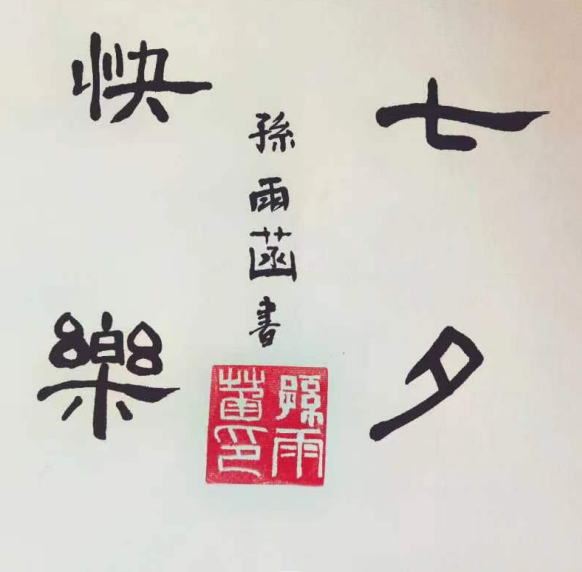 七夕
快樂
孫雨菡書
孫雨菡印